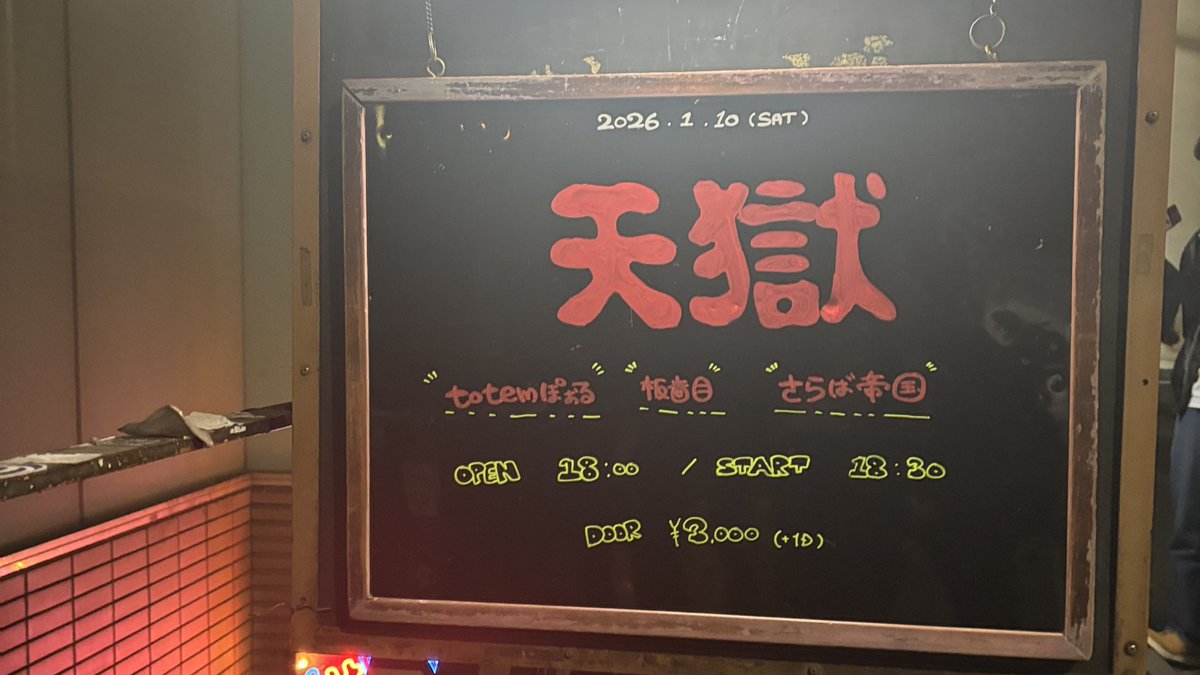 2026.1.10 (SAT)
天獄
totemぽおる 板歯目 さらば帝国
OPEN 18:00 / START 18:30
DOOR ¥3,000 (+1D)